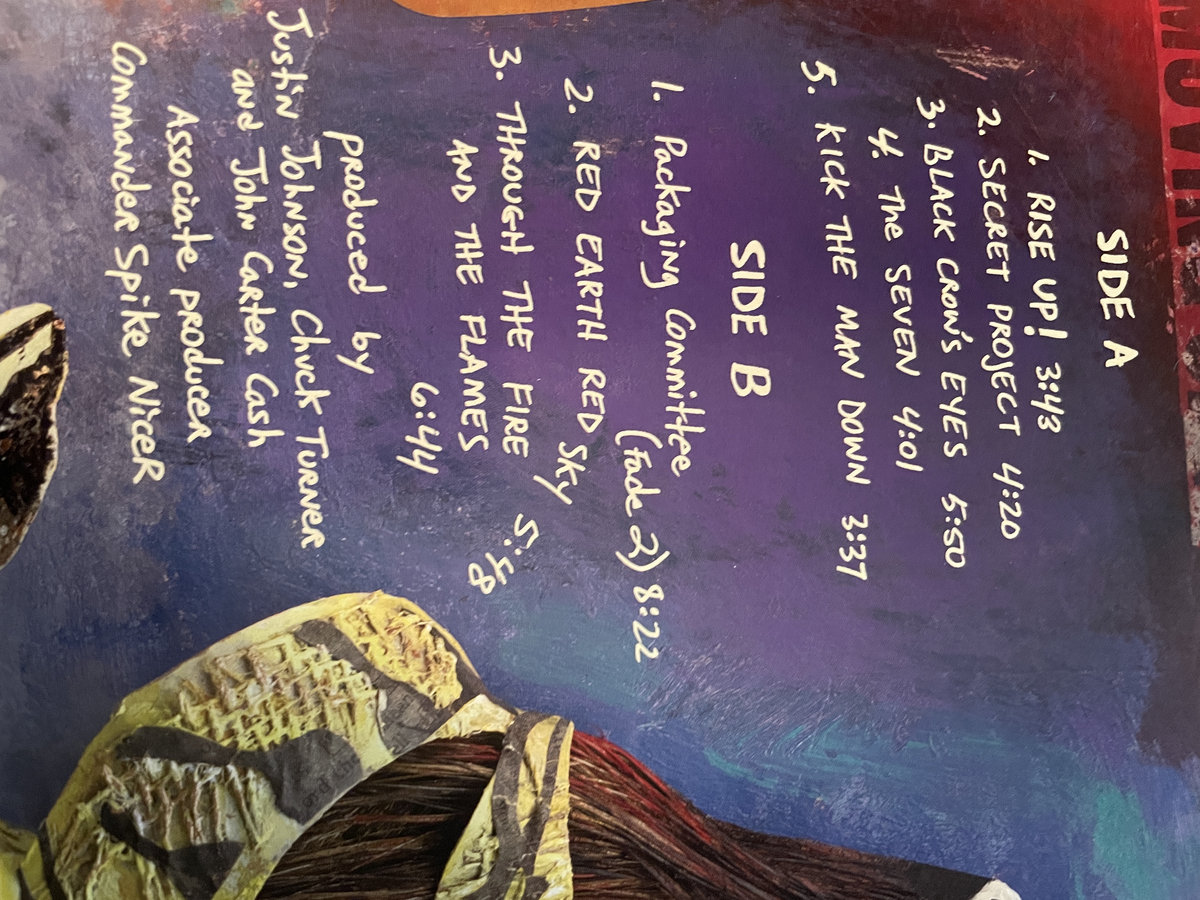 SIDE A
1. RISE UP! 3:48
2. SECRET PROJECT 4:20
3. BLACK CROW'S EYES 5:50
4. The SEVEN 4:01
5. KICK THE MAN DOWN 3:37
SIDE B
1. Packaging Committee
(Fade 2) 8:22
2. RED EARTH RED SKY 5:58
3. THROUGH THE FIRE
AND THE FLAMES
6:44
produced by
Justin Johnson, Chuck Turner
and John Carter Cash
Associate producer
Commander Spike Nicer